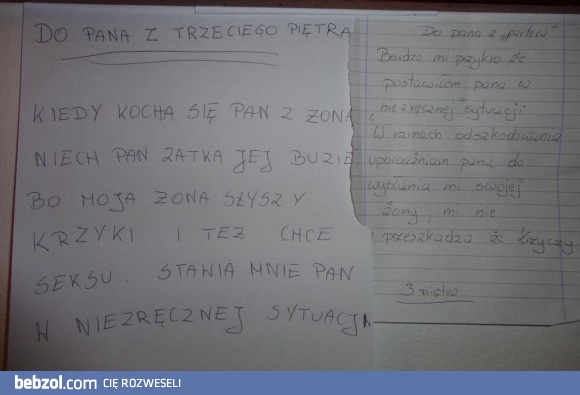 DO PANA Z TRZECIEGO PIĘTRA
KIEDY KOCHA SIĘ PAN Z ZONA
NIECH PAN ZATKA JEJ BUZIE
BO MOJA ZONA SŁYSZY
KRZYKI I TEZ CHCE
SEKSU. STAWIA MNIE PAN
W NIEZRĘCZNEJ SYTUACJI
Do pana z "parteru"
Bardzo mi przykro że
postawiłem pana w
niezręcznej sytuacji
W ramach odszkodowania
upoważniam pana do
wysłania mi swojej
żony, mi nie
przeszkadza że krzyczy
3 piętro
bebzol.com CIĘ ROZWESELI